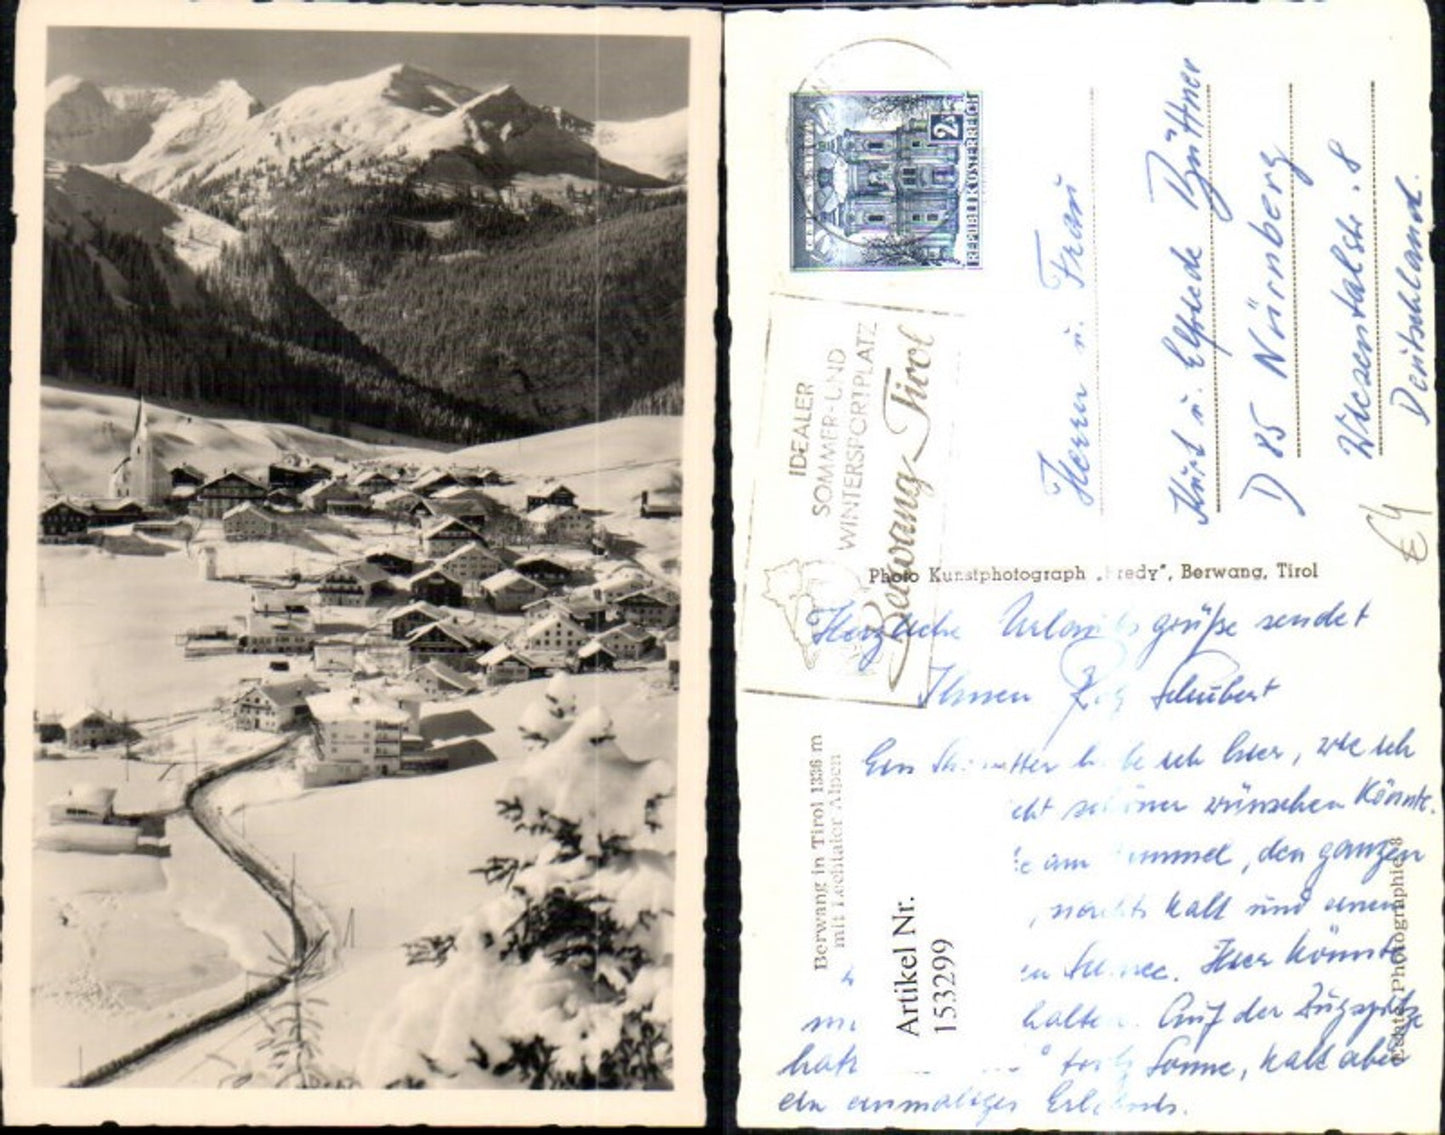 2 S
REPUBLIK ÖSTERREICH
IDEALER
SOMMER-UND
WINTERSPORTPLATZ
Berwang Tirol
Herrn u. Frau
Kurt u. Elfriede Büttner
D 85 Nürnberg
Wiesentalstr. 8
Deutschland.
€4
Photo Kunstphotograph „Fredy", Berwang, Tirol
Herzliche Urlaubsgrüße sendet
Ihnen Schubert
Ein habe ich hier, wie ich
schöner wünschen könnte.
am Himmel, den ganzen
, nachts kalt und einen
Schnee. Hier könnte
halten. Auf der Zugspitze
trotz Sonne, kalt aber
ein einmaliges Erlebnis.
Berwang in Tirol 1336 m
mit Lechtaler Alpen
Artikel Nr.
153299
Echte Photographie 8